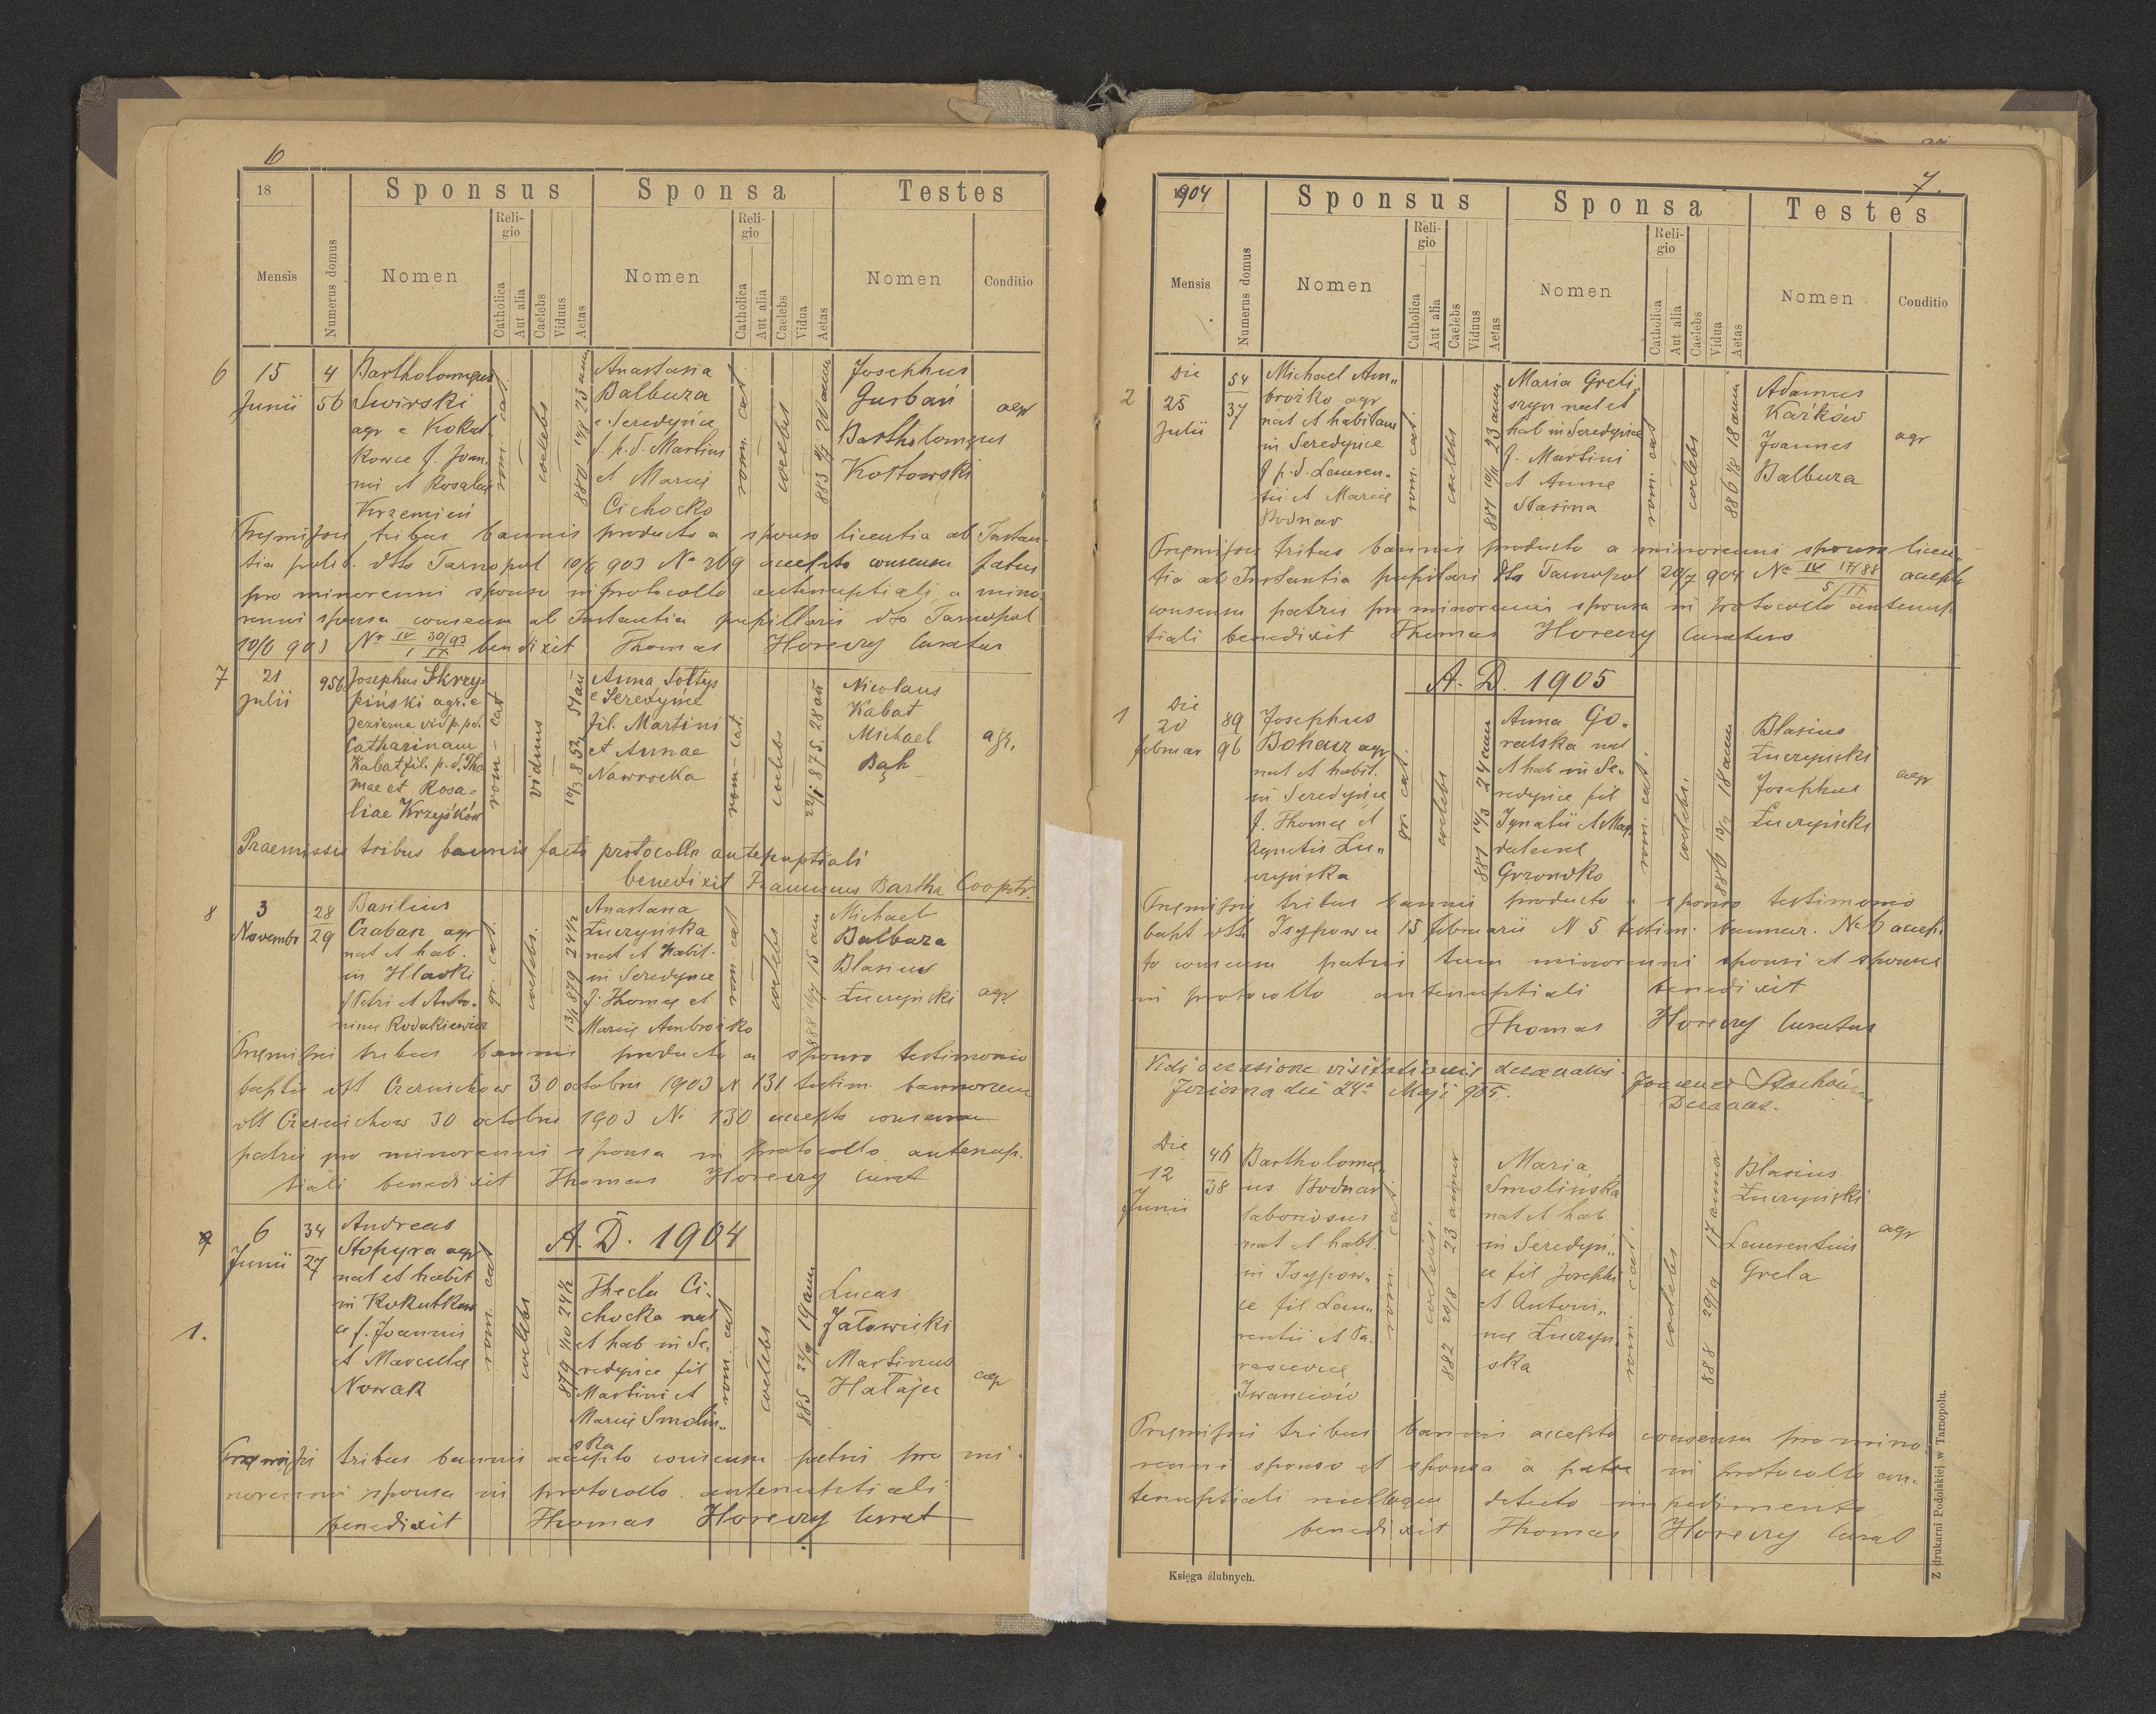 6
18 Sponsus Sponsa Testes
Mensis Numerus domus Nomen Religio Catholica Aut alia Caelebs Viduus Aetas Nomen Religio Catholica Aut alia Caelebs Vidua Aetas Nomen Conditio
6 15 Junii 4 56
Bartholomęus
Swirski
agr e Kokut
kowce f. Joan
nis et Rosalię
Krzemień
rom. cat.
coelebs
880 23 ann
Anastasia
Balbuza
e Seredyńce
f. p. d. Martini
et Marię
Cichocko
rom. cat.
coelebs
883 20 ann
Josephus
Gurbań
Bartholomęus
Kottowski
agr
Pręmissis tribus bannis producto a sponso licentia ab Instan
tia polit. dto Tarnopol 10/6 903 No 269 accepto consensu patris
pro minorenni sponso in protocollo antenuptiali a mino
renni sponsa consensu ab Instantia pupillaris dto Tarnopol
10/6 903 Nr IV 30/93 benedixit Thomas Horeczy Curatus
7 21 Julii 956
Josephus Skrzy-
piński agr. e
Jezierna vid p. p. d.
Catharinam
Kabat fil. p. d. Tho
mae et Rosa=
liae Krzyśków
rom-cat
viduus
10/3 852 51 an
Anna Sołtys
e Seredyńce
fil. Martini
et Annae
Nawrocka
rom-cat.
coelebs
22/1 875. 28 an
Nicolaus
Kabat
Michael
Bąk
agr.
Praemissis tribus bannis facto protocollo antenuptiali
benedixit Franciscus Bartha Cooptr.
8 3 Novembr 28 29
Basilius
Czaban agr
nat et hab.
in Hladki
f Petri et Anto-
ninę Rodakiewicz
gr. cat.
coelebs.
13/1 879 24 1/2
Anastasia
Łuczyńska
nat et habit.
in Seredyńce
f. Thomę et
Marię Ambrożko
rom cat
coelebs
888 15 an
Michael
Balbuza
Blasius
Łuczyński
agr
Pręmissis tribus bannis producto a sponso testimonio
bapt. dtt Czernichow 30 octobris 1903 N 131 testim. bannorum
dtt Czernichow 30 octobris 1903 No 130 accepto consensu
patris pro minorenni sponsa in protocollo antenup.
tiali benedixit Thomas Horeczy Curat
A. D. 1904
1. 6 Junii 34 27
Andreas
Stopyra agr
nat et habit
in Kokutkow
ce f. Joannis
et Marcellę
Nowak
rom. cat
coelebs
879 24 1/2
Thecla Ci-
chocka nat
et hab in Se.
redyńce fil
Martini et
Marię Smoliń„
ska
rom. cat
coelebs
885 19 ann
Lucas
Jałowicki
Martinus
Hałajca
agr
Pręmissis tribus bannis accepto consensu patris pro mi.
norenni sponsa in protocollo antenuptiali
benedixit Thomas Horeczy Curat
7.
1904 Sponsus Sponsa Testes
Mensis Numerus domus Nomen Religio Catholica Aut alia Caelebs Viduus Aetas Nomen Religio Catholica Aut alia Caelebs Vidua Aetas Nomen Conditio
2 Die 25 Julii 54 37
Michael Am„
brożko agr
nat et habitans
in Seredyńce
f p. d. Lauren„
tii et Marię
Bodnar
rom. cat.
coelebs
881 23 ann
Maria Greli
szyn nat et
hab in Seredyńce
f. Martini
et Annę
Stasina
rom. cat
coelebs
886 18 ann
Adamus
Kaźków
Joannes
Balbuza
agr
Pręmissis tribus bannis producto a minorenni sponso licen„
tia ab Instantia pupilari dto Tarnopol 20/7 904 No IV 17/88 accepto
consensu patris pro minorenni sponsa in protocollo antenup
tiali benedixit Thomas Horeczy Curatus
A. D. 1905
1 Die 20 februar 89 96
Josephus
Bohacz agr
nat et habit.
in Seredyńce
f. Thomę et
Agnetis Łu„
czyńska
gr. cat.
coelebs
881 14/3 24 ann
Anna Go.
ralska nat
et hab in Se„
redyńce fil
Ignatii et Mag
dalenę
Grzondko
rom. cat.
coelebs.
886 18 ann
Blasius
Łuczyński
Josephus
Łuczyński
agr
Pręmissis tribus bannis producto a sponso testimonio
bapt dtt Isypowce 15 februarii N 5 testim. bannor. No 6 accep.
to consensu patris tum minorenni sponsi et sponsę
in protocollo antenuptiali benedixit
Thomas Horeczy Curatus
Vidi occasione visitationis decanalis.
Jezierna die 24a Maji 905.
Decanus.
Die 12 Junii 46 38
Bartholomę
us Bodnar
laboriosus
nat et habt.
in Isypow„
ce fil Lau„
rentii et Pa.
rascevię
Iwanciów
rom. cat.
coelebs
882 20/8 23 annor
Maria
Smolińska
nat et hab
in Seredyń„
ce fil Josephi
et Antoni„
nę Łuczyń
ska
rom. cat.
coelebs
888 29/9 17 annor
Blasius
Łuczyński
Laurentius
Grela
agr
Pręmissis tribus bannis accepto consensu pro mino
renni sponso et sponsa a patre in protocollo an„
tenuptiali nulloque detecto impedimento
benedixit Thomas Horeczy Curat
Księga ślubnych.
Z drukarni Podolskiej w Tarnopolu.